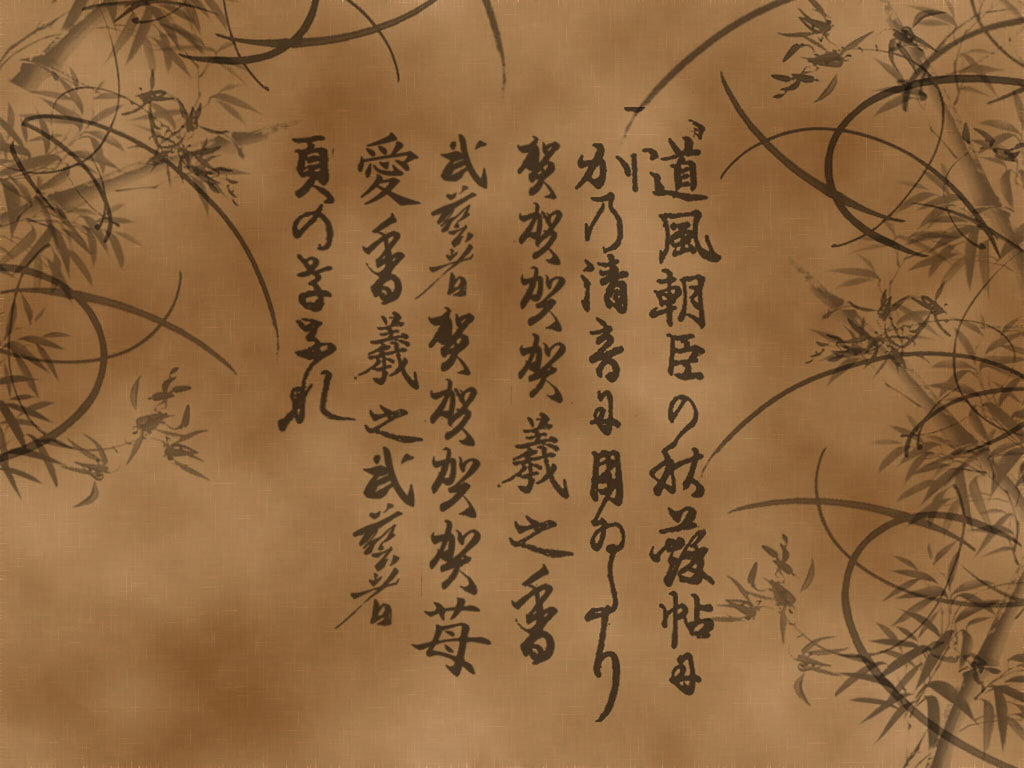 道風朝臣の秋萩帖に
かな乃清音に用ゐたり
賀賀賀賀義之香
武藝者賀賀賀賀母
愛香義之武藝者
頁の